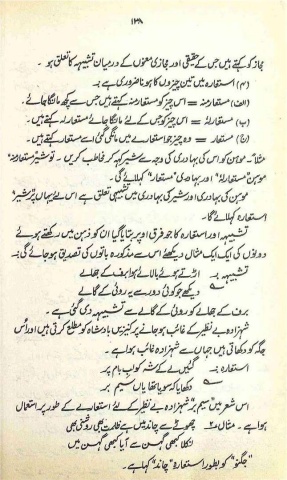 ۱۳۸
مجاز کو کہتے ہیں جس کے حقیقی اور مجازی معنوں کے درمیان تشبیہہ کا تعلق ہو۔
(م) استعارہ میں تین چیزوں کا ہونا ضروری ہے۔
(الف) مستعارمنہ = اس چیز کو مستعارمنہ کہتے ہیں جس سے کچھ مانگا جائے۔
(ب) مستعارلہ = اس چیز کو جس کے لئے مانگا جائے مستعارلہ کہتے ہیں۔
(ج) مستعار = وہ چیز جو استعارے میں مانگی گئی اسے مستعار کہتے ہیں۔
مثلاً۔ موہن کو اس کی بہادری کی وجہ سے شیر کہہ کر مخاطب کریں۔ تو شیر "مستعارمنہ"
موہن "مستعارلہ" اور بہادری "مستعار" کہلائے گی۔
موہن کی بہادری اور شیر کی بہادری میں تشبیہی تعلق ہے اس لئے یہاں پر شیر
استعارہ کہلائے گا۔
تشبیہہ اور استعارہ کا جو فرق اوپر بتایا گیا ان کو ذہن میں رکھتے ہوئے
دونوں کی ایک ایک مثال دیکھئے اس سے مذکورہ باتوں کی تصدیق ہو جائے گی۔
تشبیہہ :۔ اڑتے ہوئے بالائے ہوا برف کے گالے
دیکھے جو کوئی دور سے یہ روئی کے گالے
برف کے گالے کو روئی کے گالے سے تشبیہہ دی گئی ہے۔
شہزادہ بے نظیر کے غائب ہو جانے پر کنیزیں بادشاہ کو مطلع کرتی ہیں اور اس
جگہ کو دکھاتی ہیں جہاں سے شہزادہ غائب ہوا ہے۔
استعارہ :۔ گئیں لے کے شہ کو لب بام پر
دکھایا کہ سویا تھا یاں سیم بر
اس شعر میں "سیم بر" شہزادہ بے نظیر کے لئے استعارے کے طور پر استعمال
ہوا ہے۔ مثال ۲ چھوٹے سے چاند میں ہے ظلمت بھی روشنی بھی
نکلا کبھی گہن سے آیا کبھی گہن میں
"جگنو" کو بطور استعارہ "چاند" کہا ہے۔